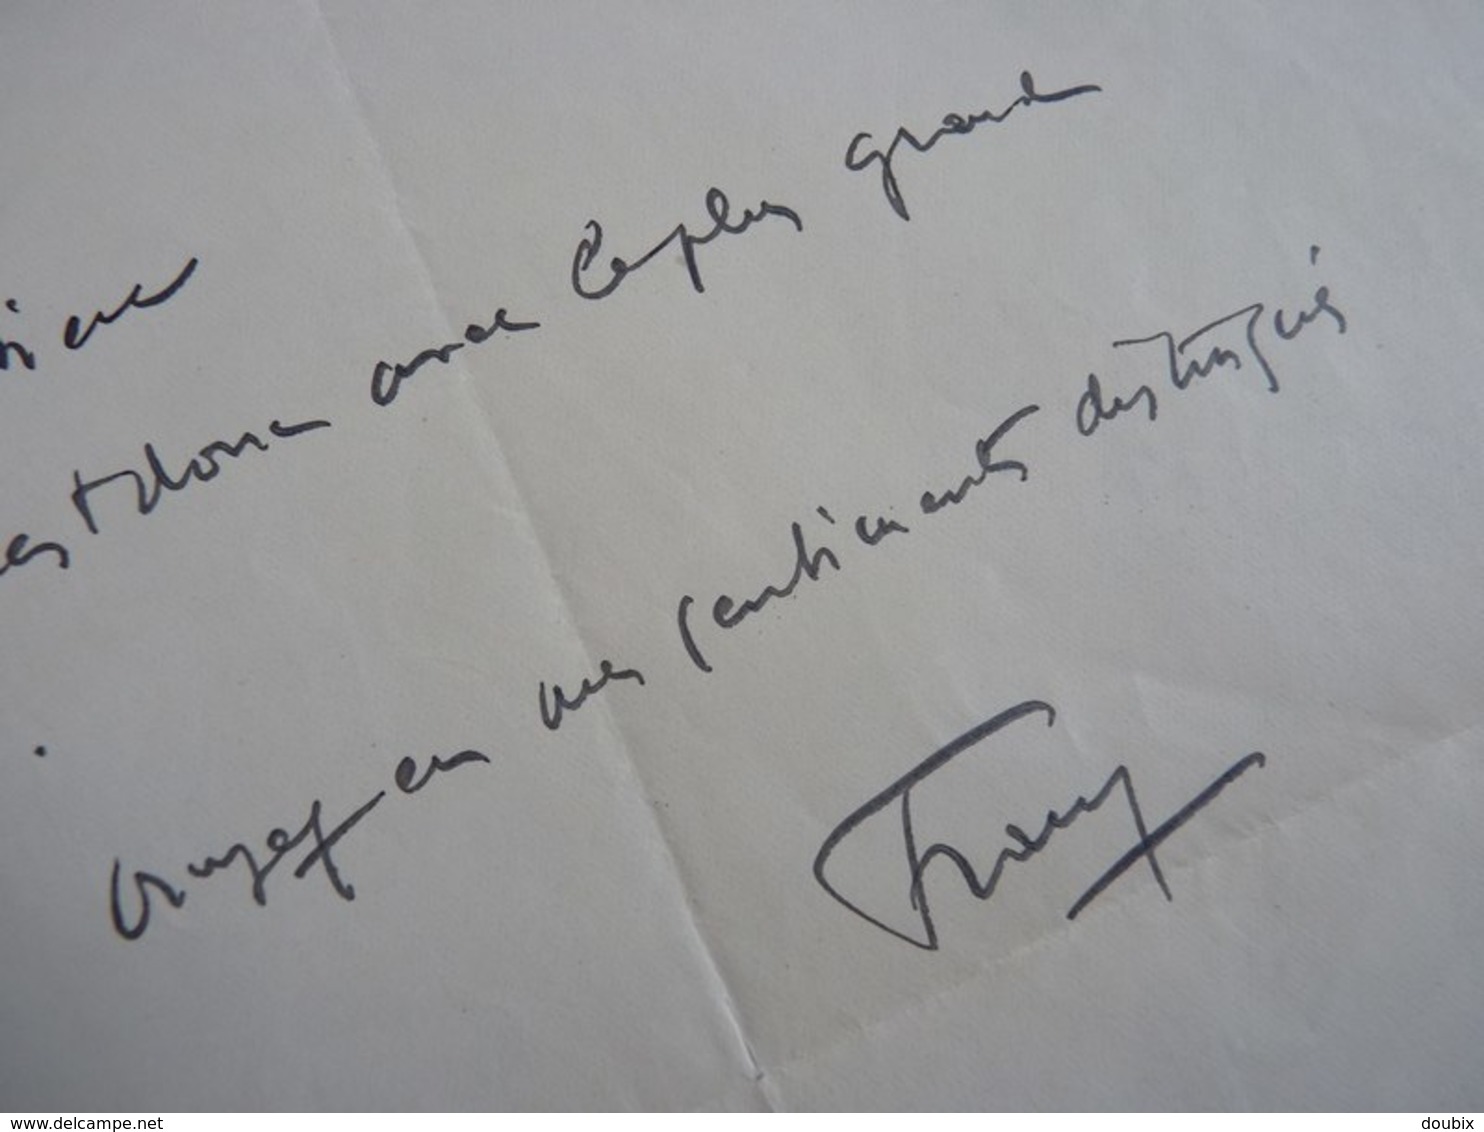 est donc avec la plus grande
croyez en mes sentiments distingués
Franz
www.delcampe.net
doubix